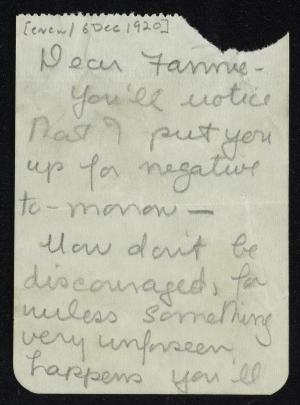 [circa / 6 Dec 1920]
Dear Fannie -
You'll notice
that I put you
up for negative
to-morrow —
Now don't be
discouraged, for
unless something
very unforseen
happens you'll